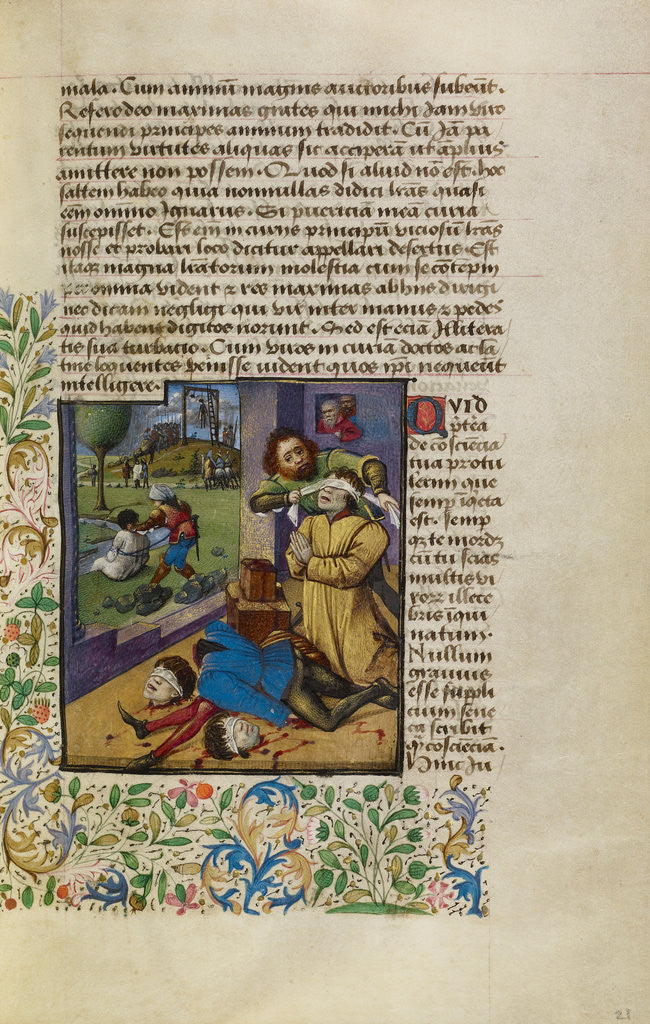 mala. Cum animũ magnis auctoribus subeũt.
Refero deo maximas grates qui michi Jam viro
sequendi principes animum tradidit. Cũ Jã pa
rentum virtutes aliquas sic acceperã ut ãplius
amittere non possem. Quod si aliud nõ est. hoc
saltem habeo quia nonnullas didici lr̃as quasi
eẽm omnino Ignarus. Si puericiã meã curia
suscepisset. Est eĩ in curiis principũ viciosũ lr̃as
nosse et probri loco dicitur appellari desertus. Est
itaq̃ magna lr̃atorum molestia cum se cõtẽpni
per omnia vident ⁊ res maximas ab hiis dirigi
ne dicam negligi qui vix inter manus ⁊ pedes
quid habent digitos norunt. Sed est eciã Illitera
tis sua turbacio. Cum viros in curiã doctos ac lã
tine loquentes venisse vident quos ipĩ nequeũt
intelligere.
QVID
p̃terea
de cõsciẽcia
tua protu
lerim que
semp ĩqeta
est. Semp
q̃ te mordꝫ
cũ tu scias
multis vi
illece
bris ĩqui
natum.
Nullum
gravius
esse suppli
cium sene
ca scribit
q̃ cõsciẽcia.
Hinc Ju
21